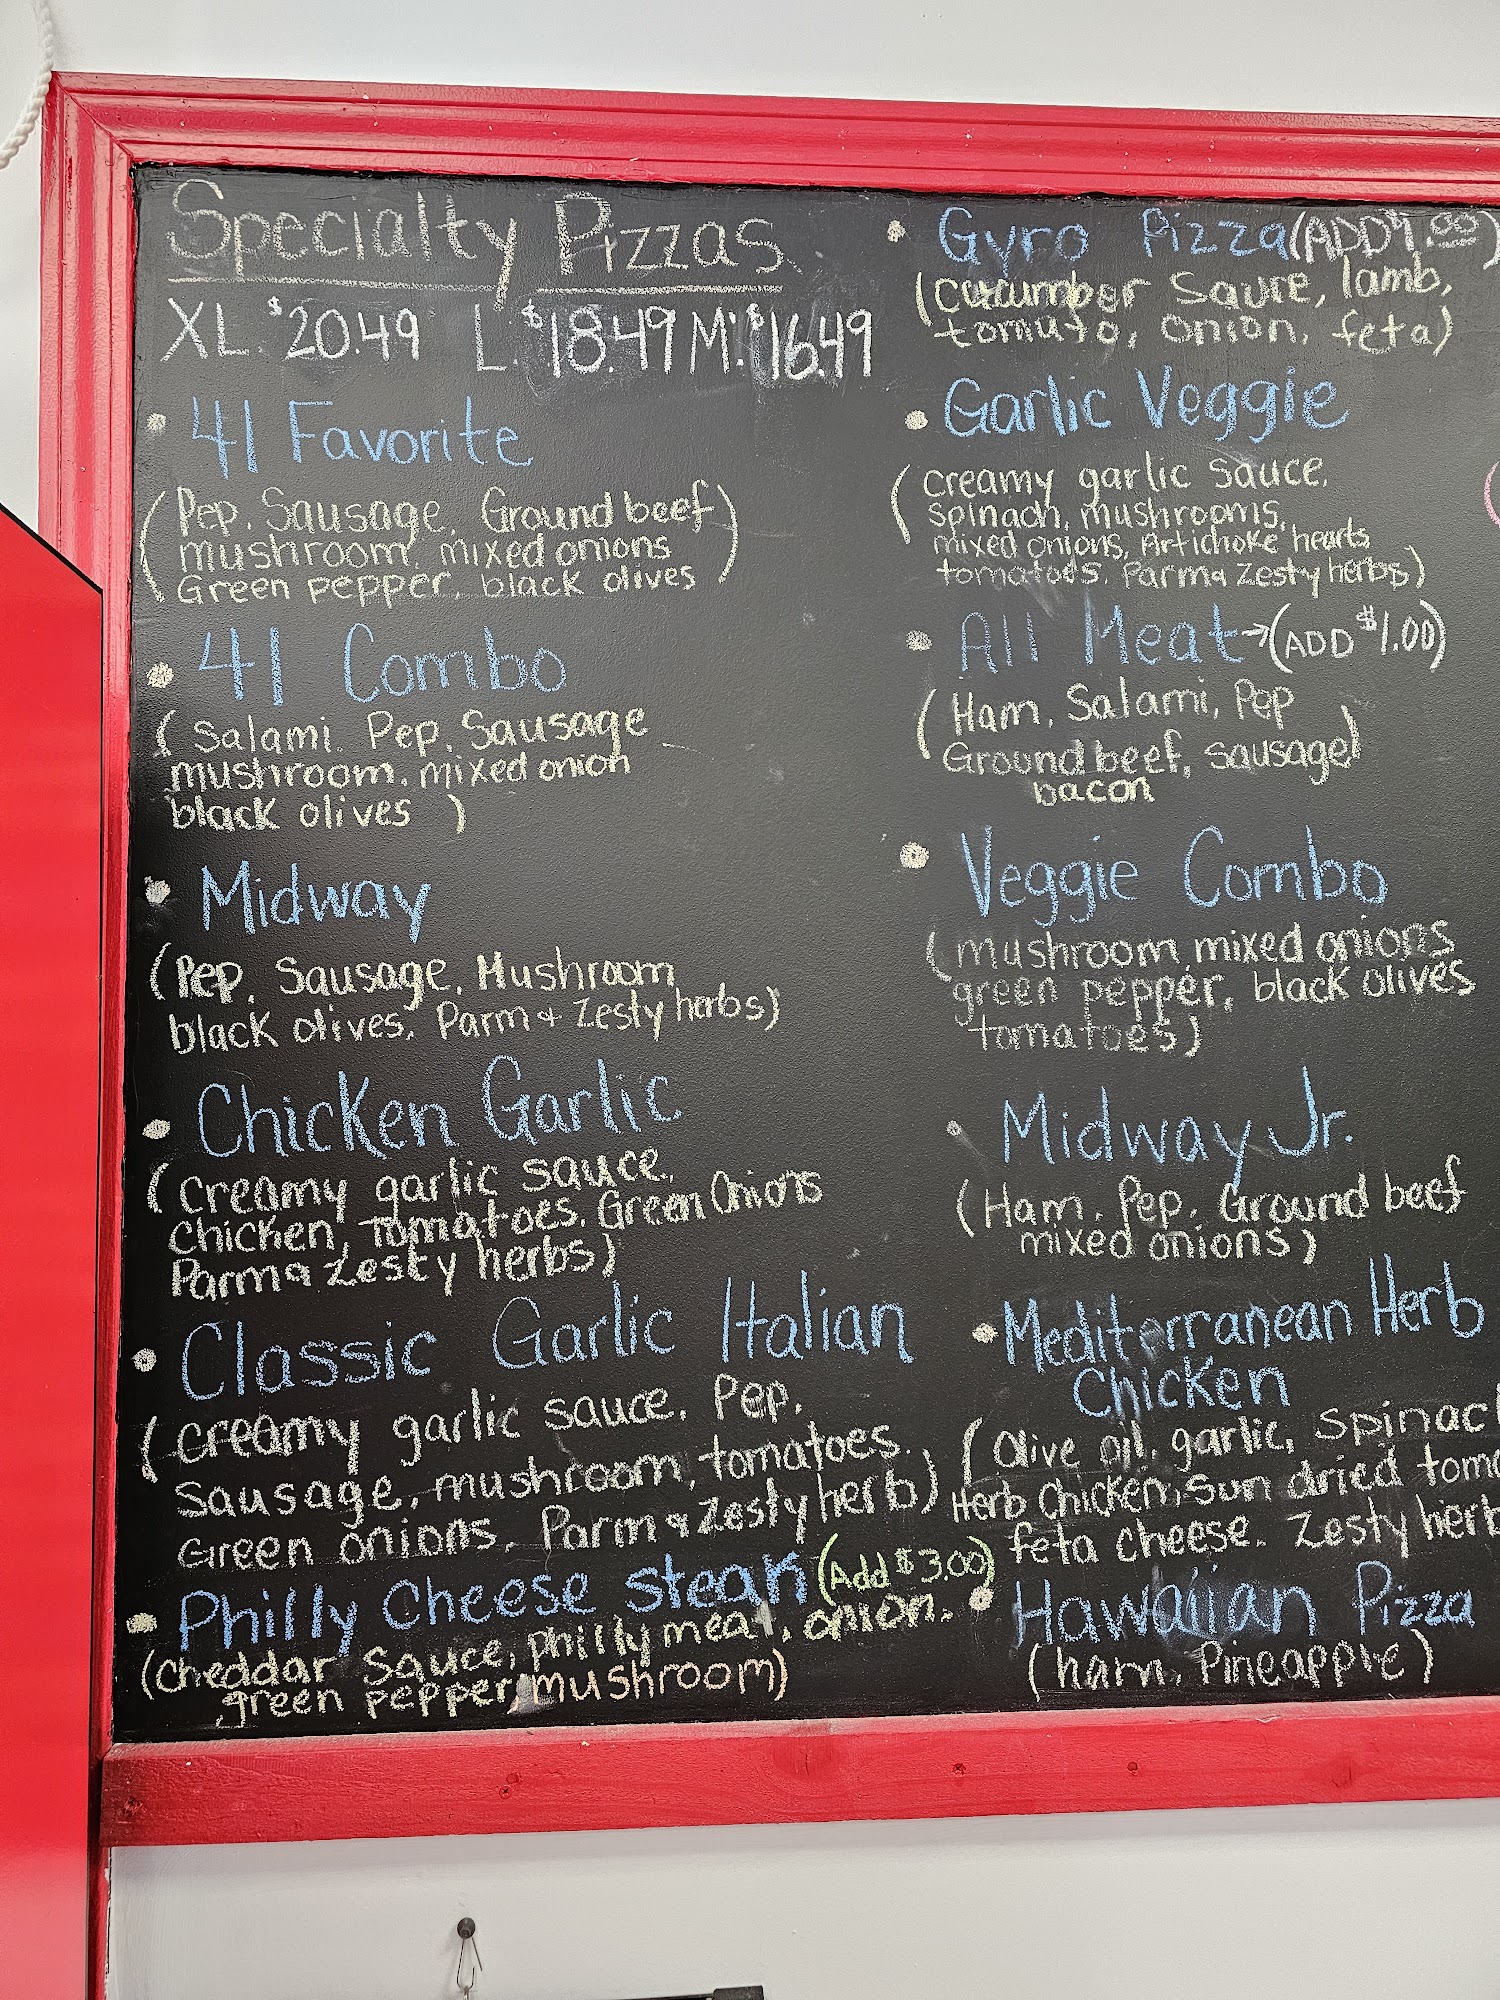 Specialty Pizzas
XL. $20.49 L. $18.49 M: $16.49
• 41 Favorite
(Pep. Sausage, Ground beef
mushroom, mixed onions
Green pepper, black olives)
• 41 Combo
(Salami. Pep. Sausage
mushroom. mixed onion
black olives )
• Midway
(Pep, Sausage, Mushroom
black olives, Parm & Zesty herbs)
• Chicken Garlic
(creamy garlic sauce,
chicken, tomatoes. Green Onions
Parm & Zesty herbs)
• Classic Garlic Italian
(creamy garlic sauce, Pep,
Sausage, mushroom, tomatoes.
Green onions, Parm & Zesty herb)
• Philly Cheese steak (Add $3.00)
(cheddar Sauce, philly meat, onion.
green pepper, mushroom)
• Gyro Pizza (ADD .00)
(cucumber Saure, lamb,
tomuto, onion, feta)
• Garlic Veggie
(creamy garlic sauce,
spinach, mushrooms,
mixed onions, Artichoke hearts
tomatoes. Parm & Zesty herbs)
• All Meat → (ADD $1.00)
(Ham, Salami, Pep
Ground beef, sausage)
bacon
• Veggie Combo
(mushroom, mixed onions
green pepper, black olives
tomatoes)
• Midway Jr.
(Ham, Pep, Ground beef
mixed onions)
• Mediterranean Herb
Chicken
(Olive oil, garlic, Spinac
Herb Chicken, Sun dried tom
feta cheese. Zesty herb
• Hawaiian Pizza
(ham, Pineapple)